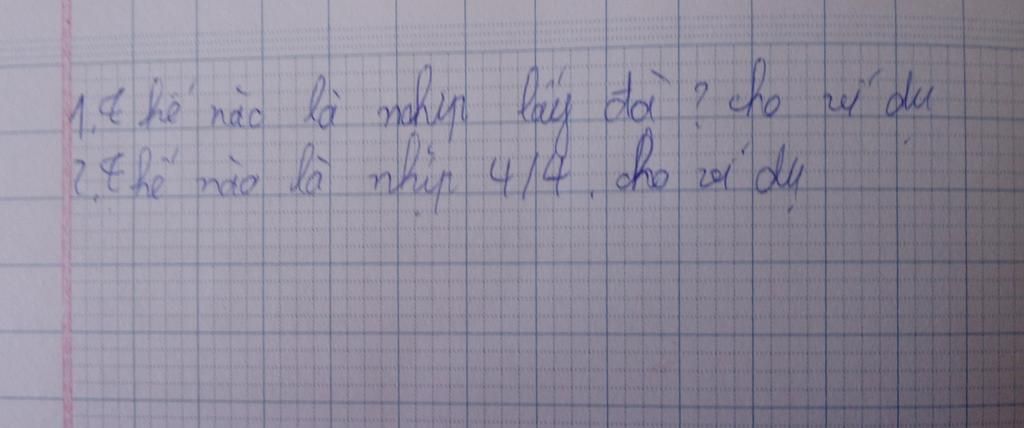 1. thế nào là nhịp lấy đà ? cho ví dụ
2. thế nào là nhịp 4/4. cho ví dụ